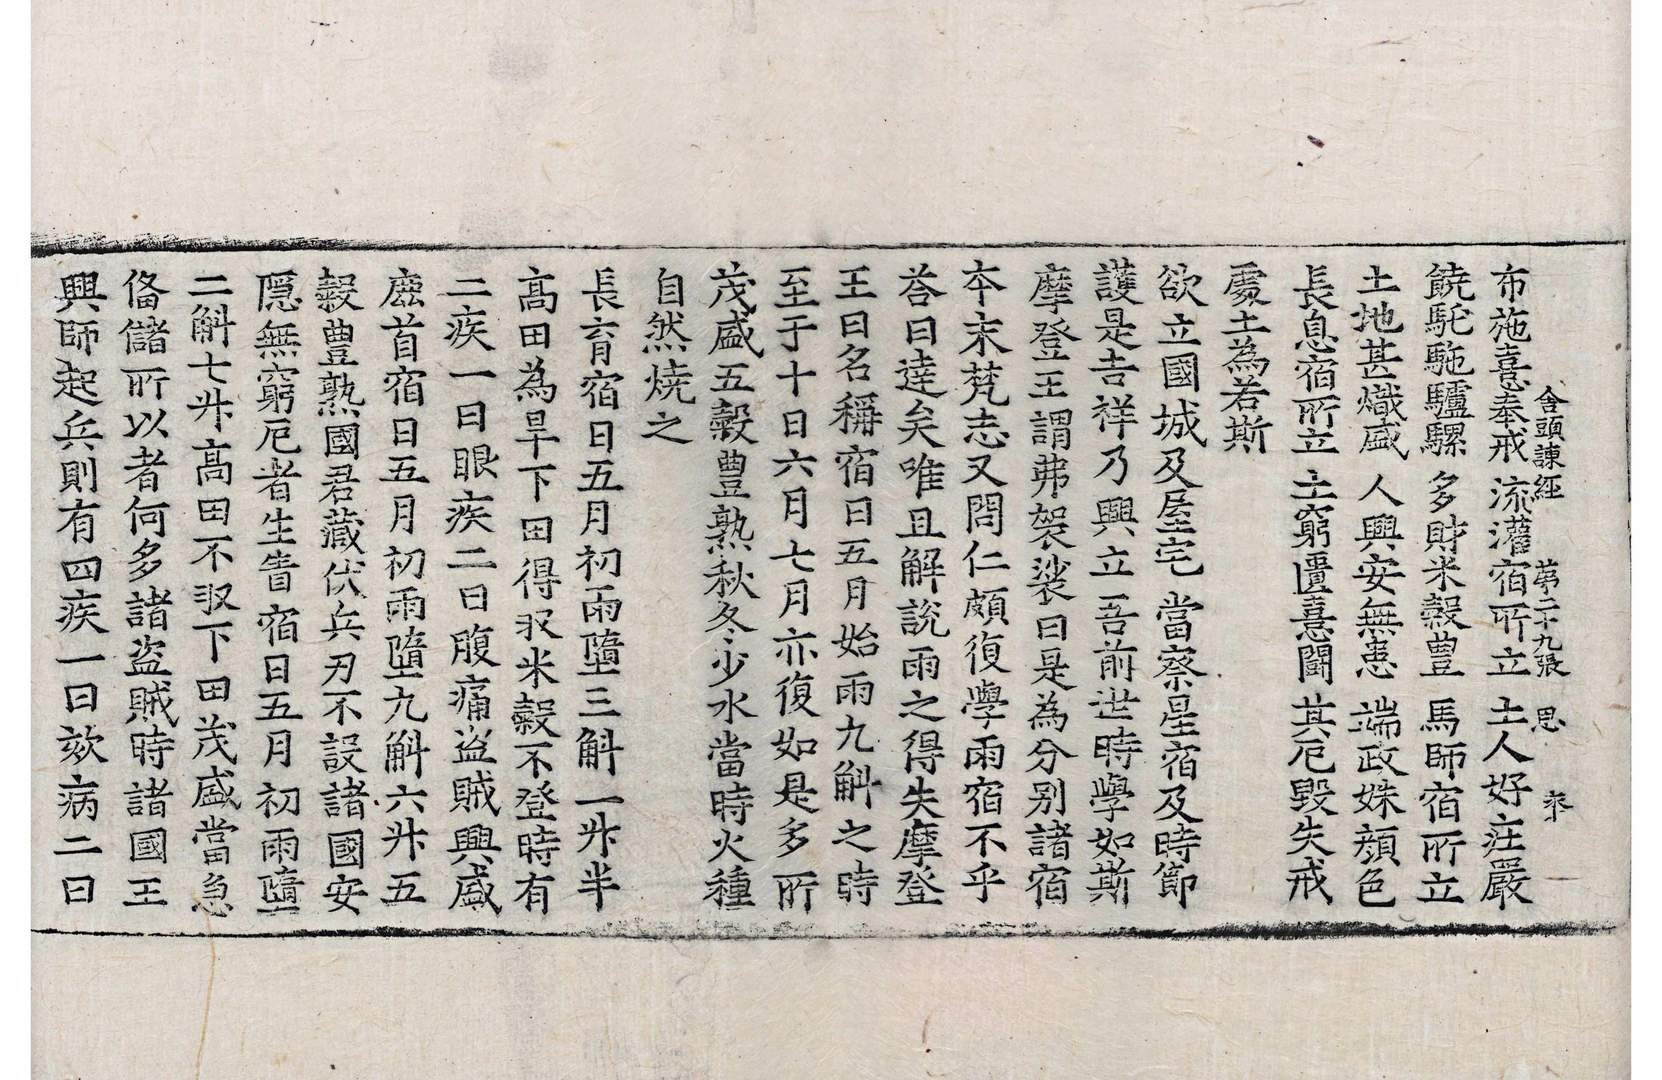 舍頭諫經　第二十九張　思　來
布施憙奉戒　流灌宿所立　土人好莊嚴
饒駝駞驢騾　多財米糓豊　馬師宿所立
土地甚熾盛　人興安無恚　端政姝顔色
長息宿所立　土窮匱憙鬪　其厄毀失戒
處土為若斯
欲立國城及屋宅　當察星宿及時節
護是吉祥乃興立　吾前世時學如斯
摩登王謂弗袈裟曰是為分別諸宿
本末梵志又問仁頗復學雨宿不乎
荅曰達矣唯且解說雨之得失摩登
王曰名稱宿日五月始雨九斛之時
至于十日六月七月亦復如是多所
茂盛五糓豊熟秋冬少水當時火種
自然燒之
長育宿日五月初雨墮三斛一升半
高田為旱下田得収米糓不登時有
二疾一曰眼疾二曰腹痛盜賊興盛
鹿首宿日五月初雨墮九斛六升五
糓豊熟國君藏伏兵刃不設諸國安
隱無窮厄者生眚宿日五月初雨墮
二斛七升高田不収下田茂盛當急
俻儲所以者何多諸盜賊時諸國王
興師起兵則有四疾一曰欬病二曰